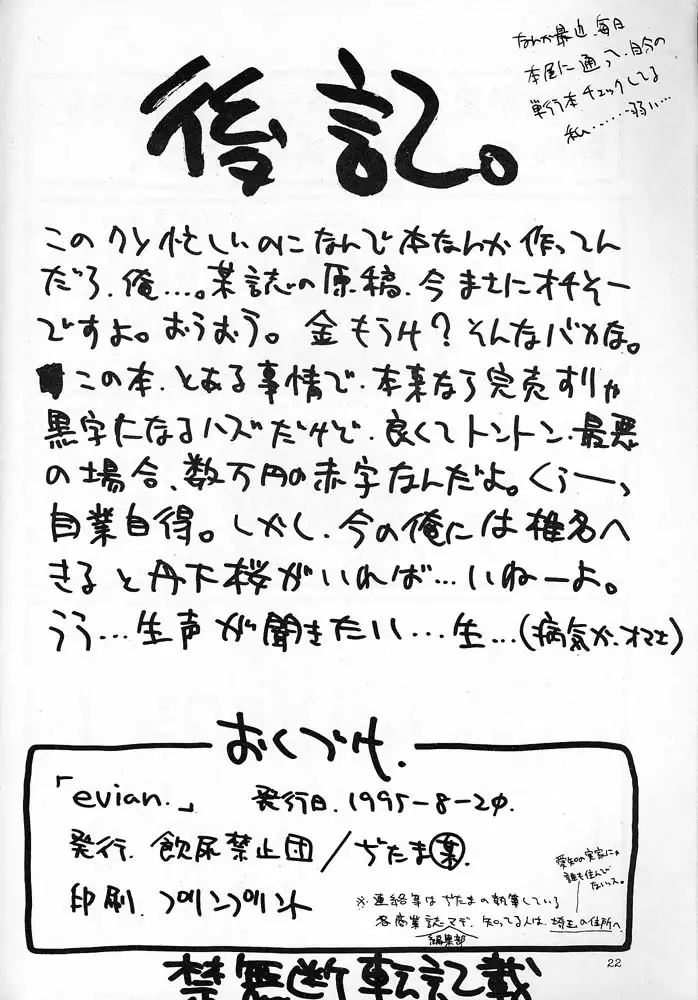 後記。
なんか最近、毎日
本屋に通って、自分の
単行本チェックしてる
私……弱い…
このクソ忙しいのになんで本なんか作ってん
だろ、俺…。某誌の原稿、今まさにオチそー
ですよ。おうおう。金もうけ？そんなバカな。
この本、とある事情で、本来なら完売すりゃ
黒字になるハズだけど、良くてトントン、最悪
の場合、数万円の赤字なんだよ。くぅーっ
自業自得。しかし、今の俺には椎名へ
きると丹下桜がいれば…いねーよ。
うう…生声が聞きたい…生…（病気か、オマエ）
おくづけ、
「evian.」 発行日、1995-8-20.
発行、飲尿禁止団／ぢたま㊙
印刷、プリンプリント
※連絡等はぢたまの執筆している
各商業誌マデ、知ってる人は、埼玉の住所へ
編集部
愛知の実家にゃ
誰も住んで
ないッス。
22
禁無断転記載